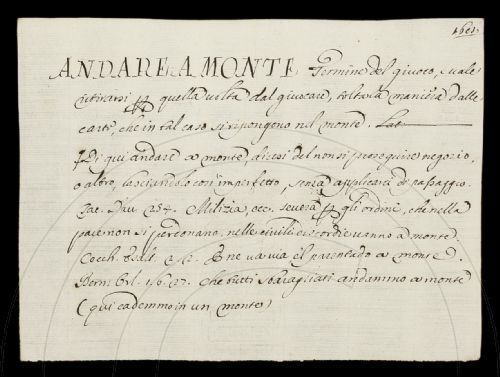 ANDARE A MONTE Termine del giuoco, e vale
ritirarsi p quella volta dal giuocare, tolta la maniera dalle
carte, che in tal caso si ripongono nel monte. Lat.
Di qui andare a monte, dicesi del non si proseguire negozio,
o altro, lasciandolo così imperfetto, senza applicarci di passaggio.
Tac. Dav. 254. Milizia, ecc. severa p gli ordini, che nella
pace non si perdonano, nelle civili discordie vanno a monte.
Cecch. 2. E ne va via il parentado a monte.
Bern. Orl. 1. 6. 27. Che tutti sbaragliati andammo a monte
(qui cademmo in un monte)